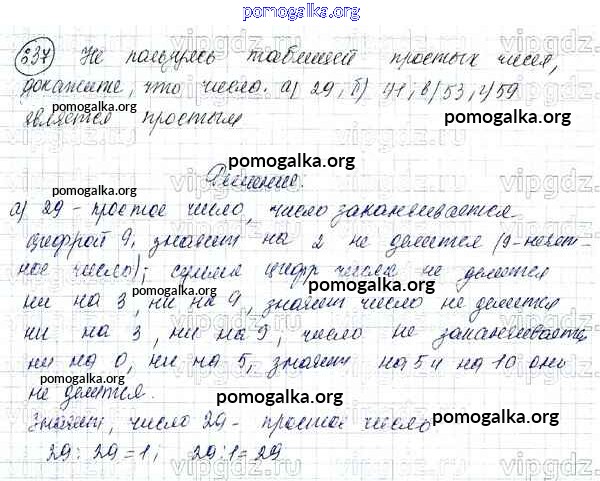 pomogalka.org
237 Не пользуясь таблицей простых чисел,
докажите, что число: а) 29; б) 41; в) 53; г) 59
pomogalka.org pomogalka.org
является простым
pomogalka.org
Решение:
pomogalka.org pomogalka.org
а) 29 - простое число, число заканчивается
цифрой 9, значит на 2 не делится (9-нечет-
ное число); сумма цифр числа не делится
pomogalka.org
ни на 3, ни на 9, значит число не делится
ни на 3, ни на 9, число не заканчивается
ни на 0, ни на 5, значит на 5 и на 10 оно
pomogalka.org pomogalka.org
не делится.
Значит, число 29 - простое число
pomogalka.org
29 : 29 = 1; 29 : 1 = 29
pomogalka.org
vipgdz.ru